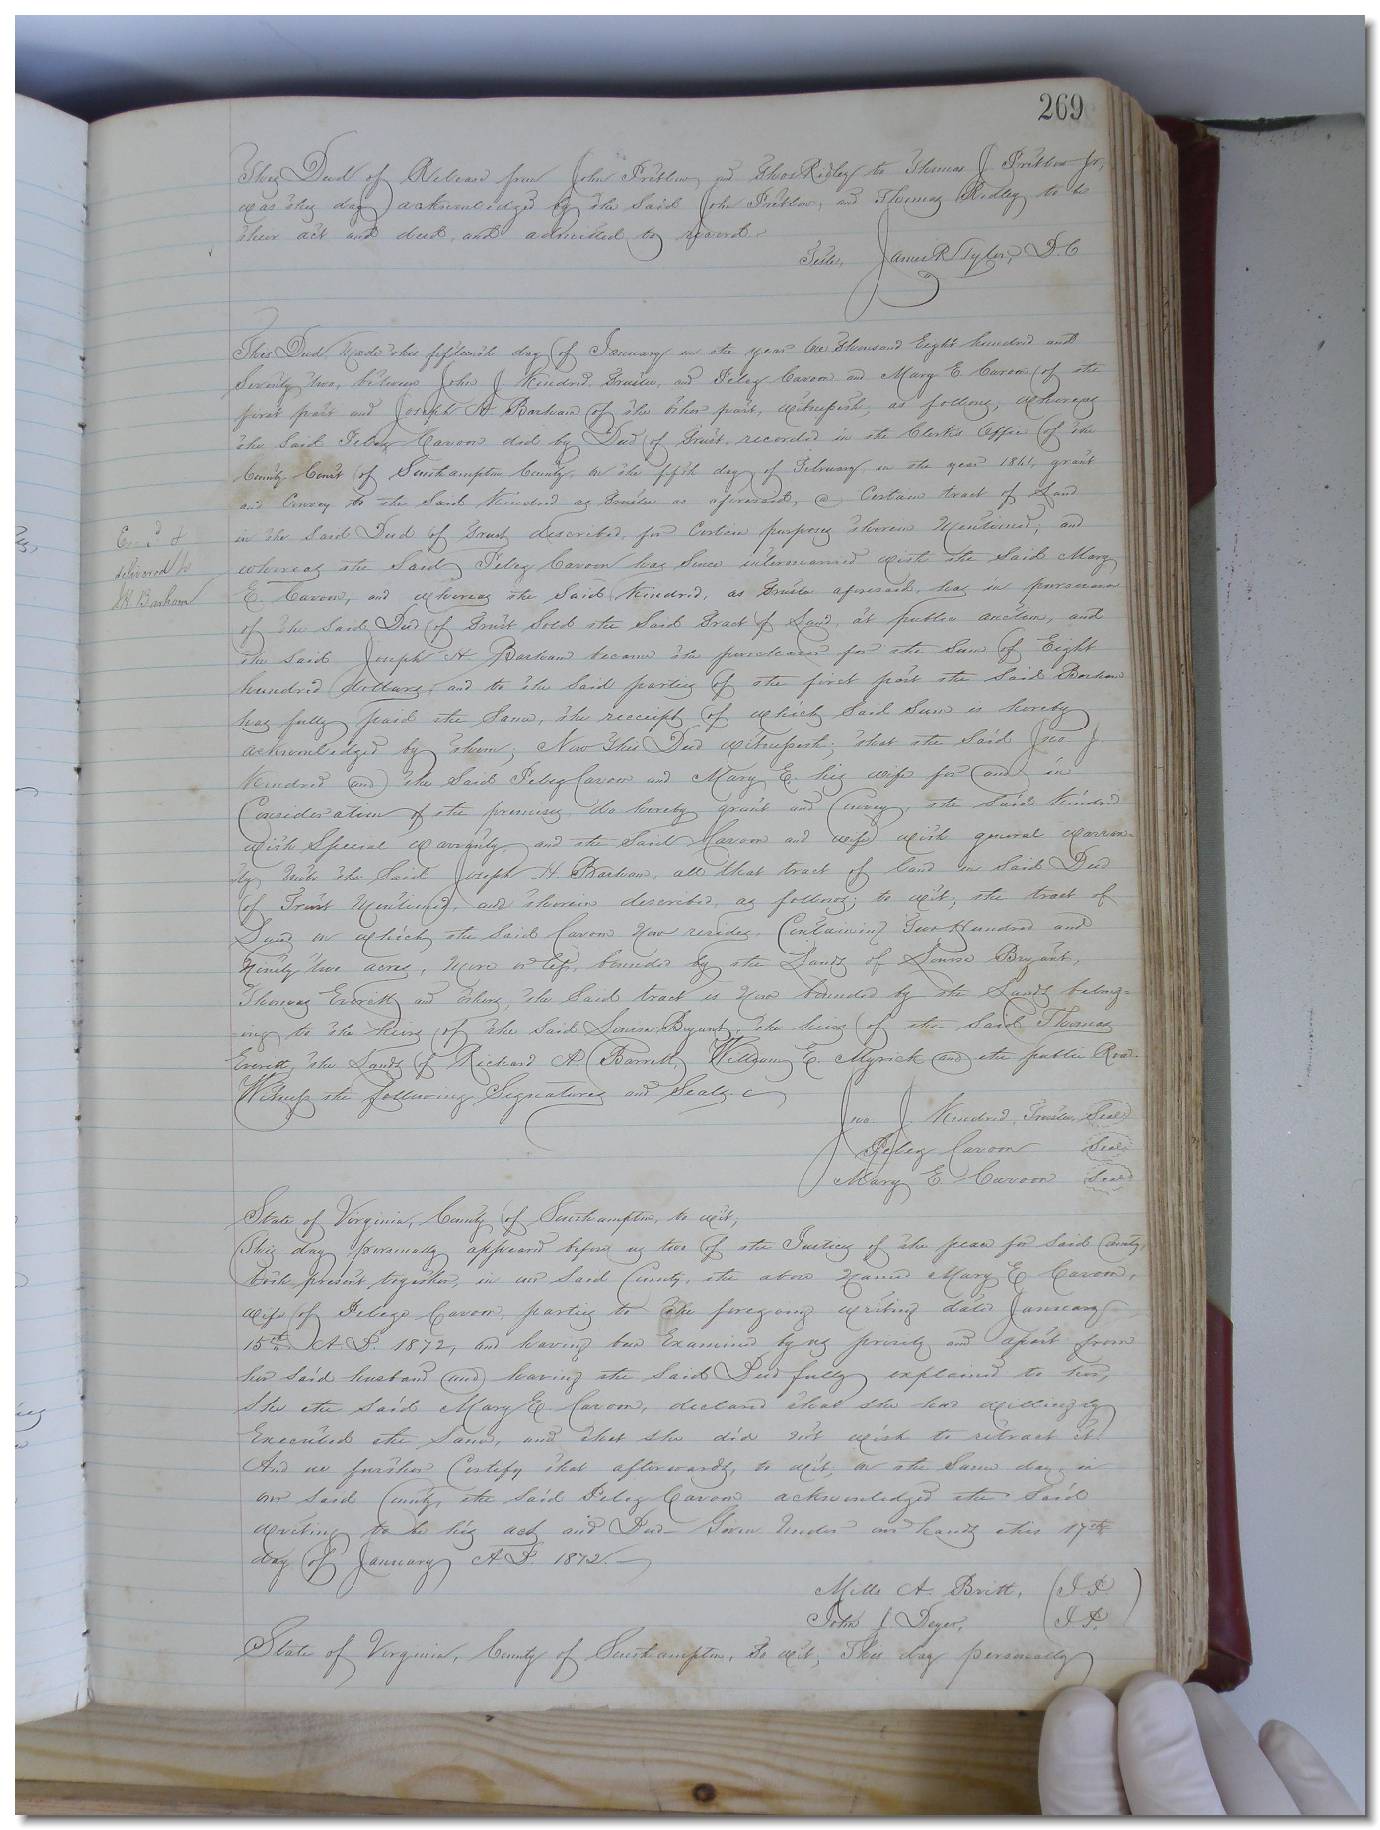 269
This Deed of Release from John Pretlow, and Thos Ridley to Thomas J Pretlow Jr,
was this day acknowledged by the said John Pretlow, and Thomas Ridley to be
their act and deed, and admitted to record.
Teste, James R Tyler, D.C
This Deed, Made this fifteenth day of January in the year One thousand Eight hundred and
Seventy two, between John J Kindred, Trustee, and Peleg Cavoon and Mary E Cavoon of the
first part and Joseph H Barham of the other part, witnesseth, as follows, whereas
the said Peleg Cavoon did by Deed of Trust, recorded in the Clerks Office of the
County Court of Southampton County, on the fifth day of February, in the year 1861, grant
and Convey to the said Kindred as Trustee as aforesaid, a Certain tract of Land
in the said Deed of Trust described, for Certain purposes therein Mentioned, and
whereas the said Peleg Cavoon has since intermarried with the said Mary
E Cavoon, and whereas the said Kindred, as Trustee aforesaid, has in pursuance
of the said Deed of Trust Sold the said Tract of Land, at public auction, and
the said Joseph H Barham became the purchaser for the Sum of Eight
hundred dollars, and to the said parties of the first part the said Barham
has fully paid the same, the receipt of which said sum is hereby
acknowledged by them; Now this Deed witnesseth; that the said Jno J
Kindred and the said Peleg Cavoon and Mary E his wife for and in
Consideration of the premises, do hereby grant and Convey, the said Kindred
with Special warranty, and the said Cavoon and wife with general warran=
ty unto the said Joseph H Barham, all that tract of land in said Deed
of Trust Mentioned, and therein described, as follows; to wit; the tract of
Land on which the said Cavoon Now resides, Containing Two Hundred and
Ninety two acres, More or less, bounded by the Lands of Louisa Bryant,
Thomas Everett and others, the said tract is Now bounded by the Lands belong=
=ing to the heirs of the said Louisa Bryant, the heirs of the said Thomas
Everett, the Lands of Richard A Barrett, William E. Myrick and the public Road.
Witness the following Signatures and Seals.
Jno. J. Kindred, Trustee, Seal
Peleg Cavoon Seal
Mary E Cavoon Seal
Exd &
delivered to
J H Barham
State of Virginia, County of Southampton, to wit,
This day personally appeard before us two of the Justices of the peace for said County,
both present together, in our said County, the above Named Mary E Cavoon,
wife of Peleg Cavoon, parties to the foregoing writing dated January
15th A.D. 1872, and having been Examined by us privily and apart from
her said husband and having the said Deed fully explained to her,
She the said Mary E Cavoon, declared that she had willingly
Executed the same, and that she did not wish to retract it.
And we further Certify that afterwards, to wit, on the same day in
our said County, the said Peleg Cavoon acknowledged the said
writing to be his act and Deed Given Under our hands this 17th
day of January A.D. 1872.
Mills A. Britt, (J.P.)
John J. Deyer, (J.P.)
State of Virginia, County of Southampton, to wit, This day personally